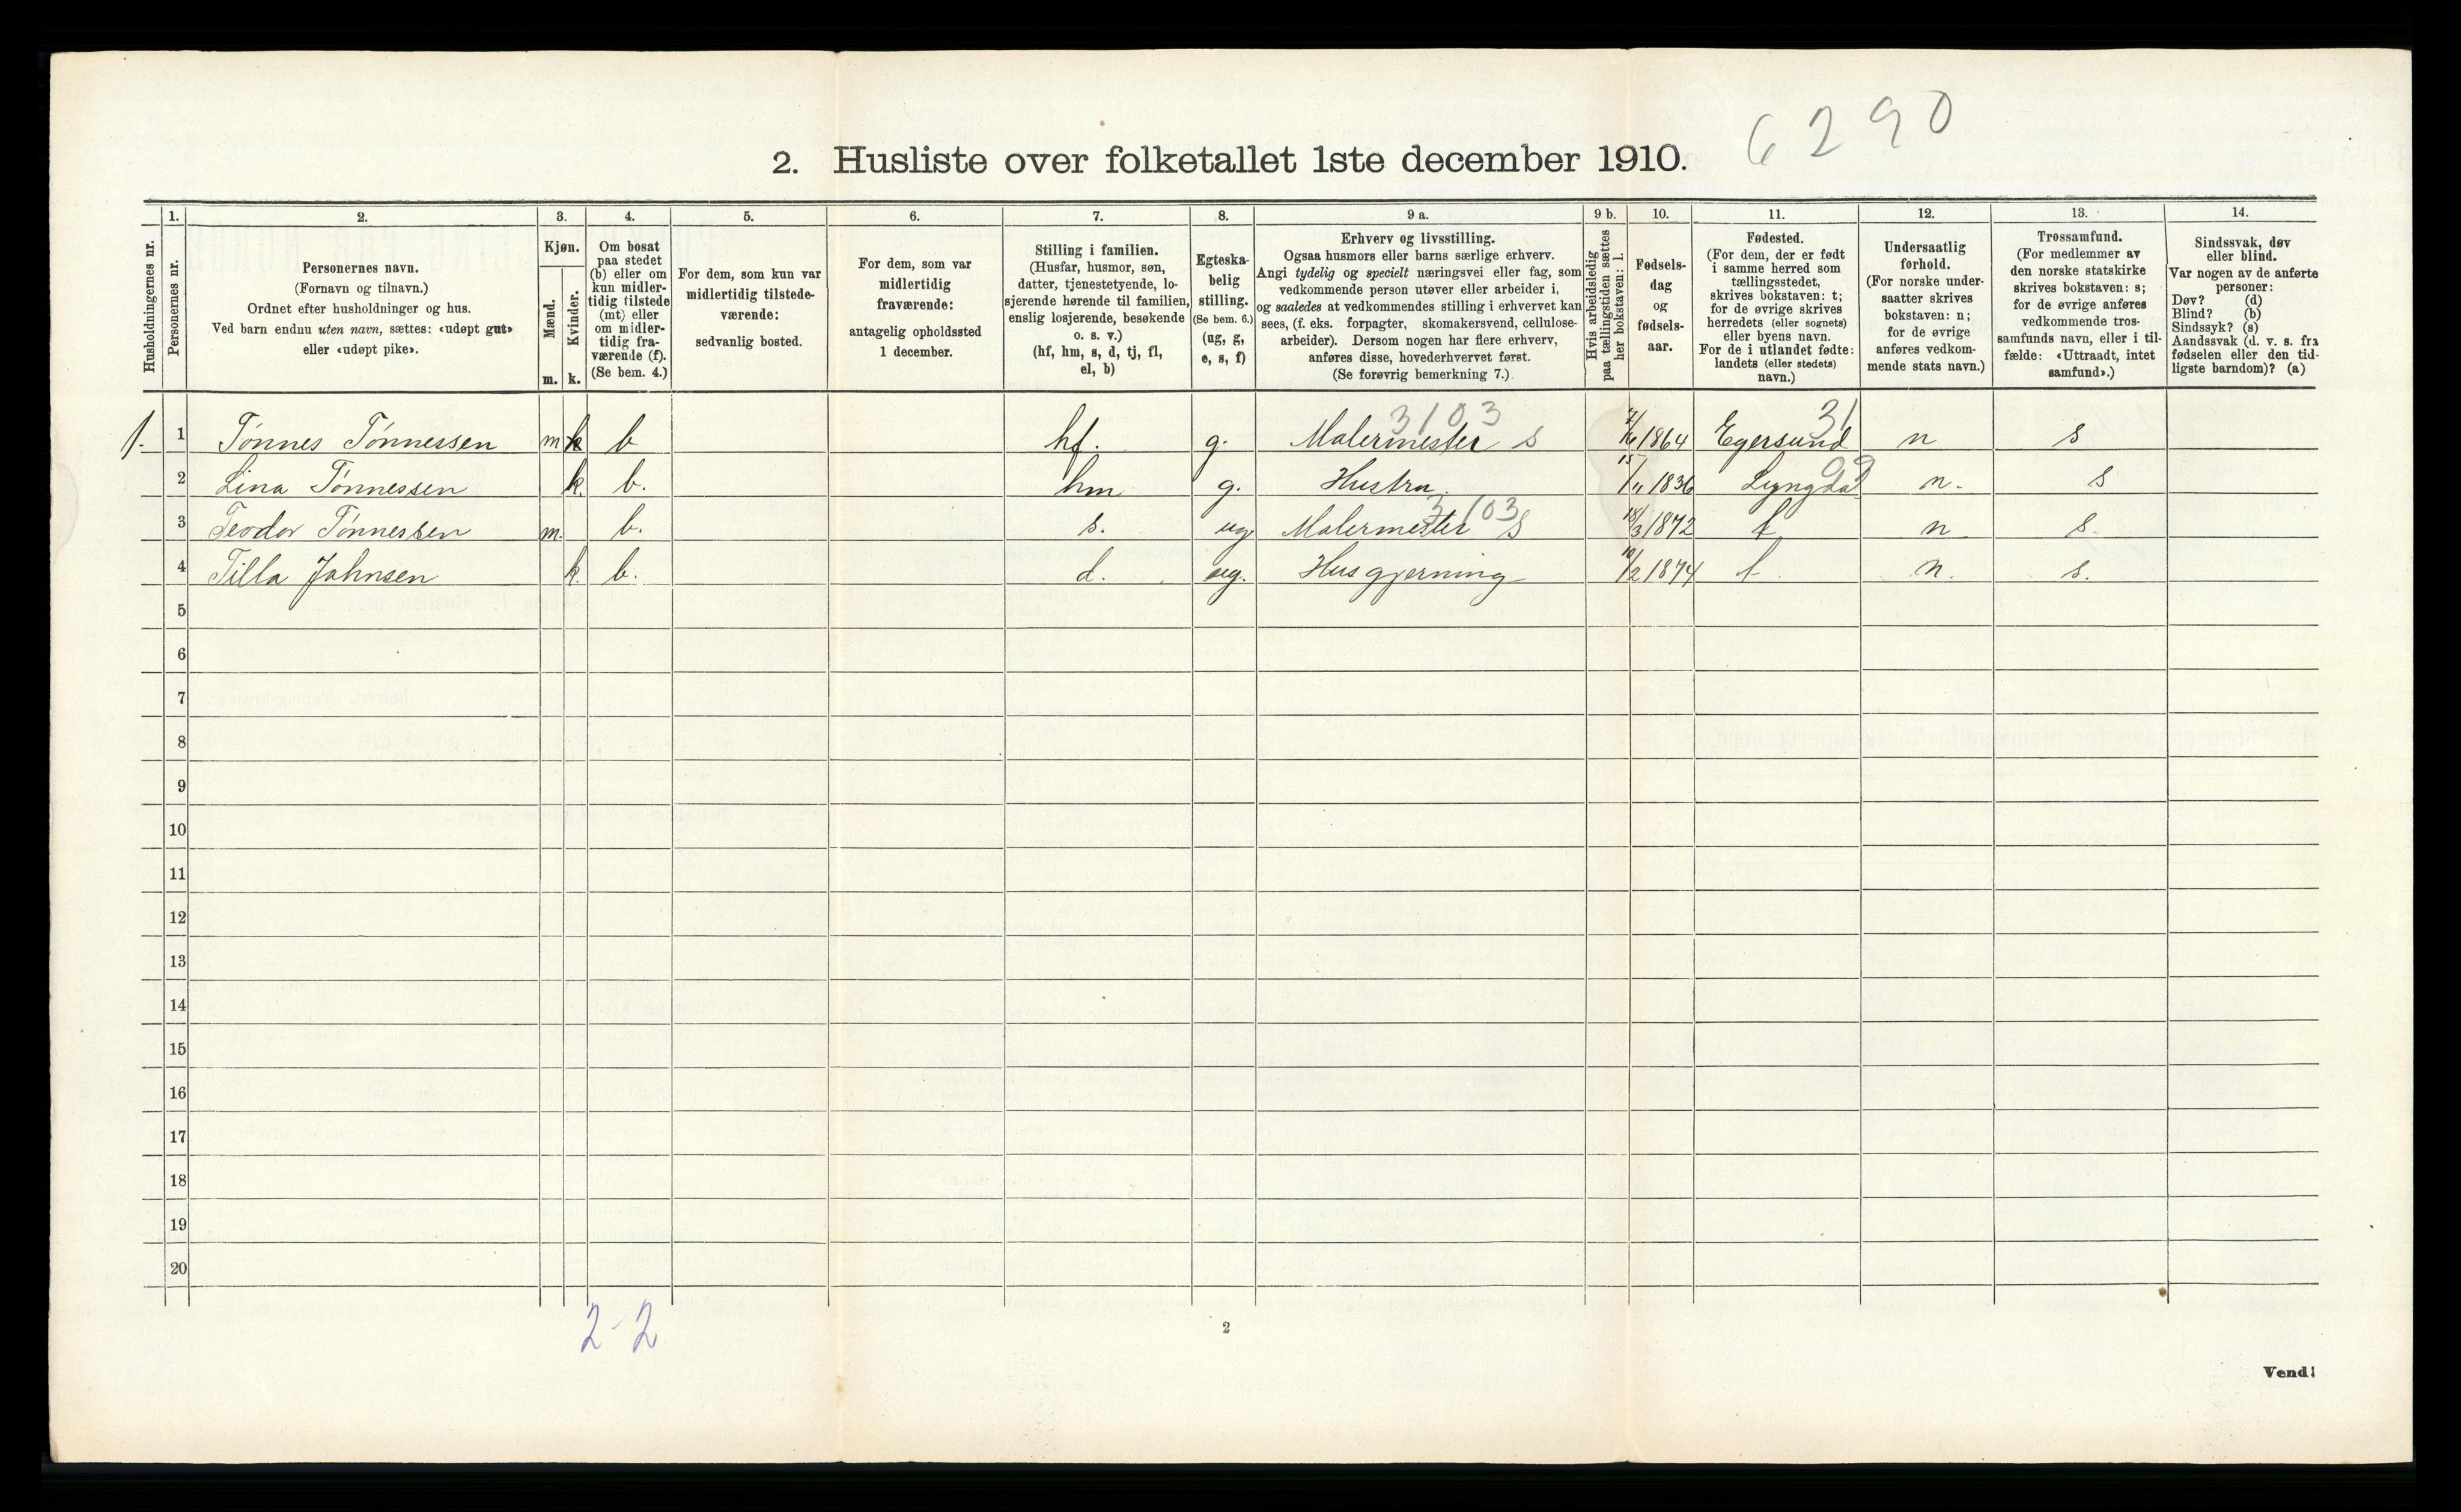 6290
2. Husliste over folketallet 1ste december 1910.
Husholdningernes nr.
1.
Personernes nr.
2.
Personernes navn.
(Fornavn og tilnavn.)
Ordnet efter husholdninger og hus.
Ved barn endnu uten navn, sættes: «udøpt gut»
eller «udøpt pike».
3.
Kjøn.
Mænd.
m.
Kvinder.
k.
4.
Om bosat
paa stedet
(b) eller om
kun midler-
tidig tilstede
(mt) eller
om midler-
tidig fra-
værende (f).
(Se bem. 4.)
5.
For dem, som kun var
midlertidig tilstede-
værende:
sedvanlig bosted.
6.
For dem, som var
midlertidig
fraværende:
antagelig opholdssted
1 december.
7.
Stilling i familien.
(Husfar, husmor, søn,
datter, tjenestetyende, lo-
sjerende hørende til familien,
enslig losjerende, besøkende
o. s. v.)
(hf, hm, s, d, tj, fl,
el, b)
8.
Egteska-
belig
stilling.
(Se bem. 6.)
(ug, g,
e, s, f)
9 a.
Erhverv og livsstilling.
Ogsaa husmors eller barns særlige erhverv.
Angi tydelig og specielt næringsvei eller fag, som
vedkommende person utøver eller arbeider i,
og saaledes at vedkommendes stilling i erhvervet kan
sees, (f. eks. forpagter, skomakersvend, cellulose-
arbeider). Dersom nogen har flere erhverv,
anføres disse, hovederhvervet først.
(Se forøvrig bemerkning 7.)
9 b.
Hvis arbeidsledig
paa tællingstiden sættes
her bokstaven: l.
10.
Fødsels-
dag
og
fødsels-
aar.
11.
Fødested.
(For dem, der er født
i samme herred som
tællingsstedet,
skrives bokstaven: t;
for de øvrige skrives
herredets (eller sognets)
eller byens navn.
For de i utlandet fødte:
landets (eller stedets)
navn.)
12.
Undersaatlig
forhold.
(For norske under-
saatter skrives
bokstaven: n;
for de øvrige
anføres vedkom-
mende stats navn.)
13.
Trossamfund.
(For medlemmer av
den norske statskirke
skrives bokstaven: s;
for de øvrige anføres
vedkommende tros-
samfunds navn, eller i til-
fælde: «Uttraadt, intet
samfund».)
14.
Sindssvak, døv
eller blind.
Var nogen av de anførte
personer:
Døv? (d)
Blind? (b)
Sindssyk? (s)
Aandssvak (d. v. s. fra
fødselen eller den tid-
ligste barndom)? (a)
3103 31
1. 1 Tønnes Tønnessen m k b hf. g. Malermester s 1864 Egersund n s
09
2 Lina Tønnessen k. b. hm g. Hustru 15/11 1836 Lyngdal n. s
3103
3 Teodor Tønnessen m. b. s. ug Malermester s 18/3 1872 t n s.
4 Tilla Jahnsen k. b. d. ug. Husgjerning 10/2 1874 t n. s.
5
6
7
8
9
10
11
12
13
14
15
16
17
18
19
20
2-2
2
Vend!